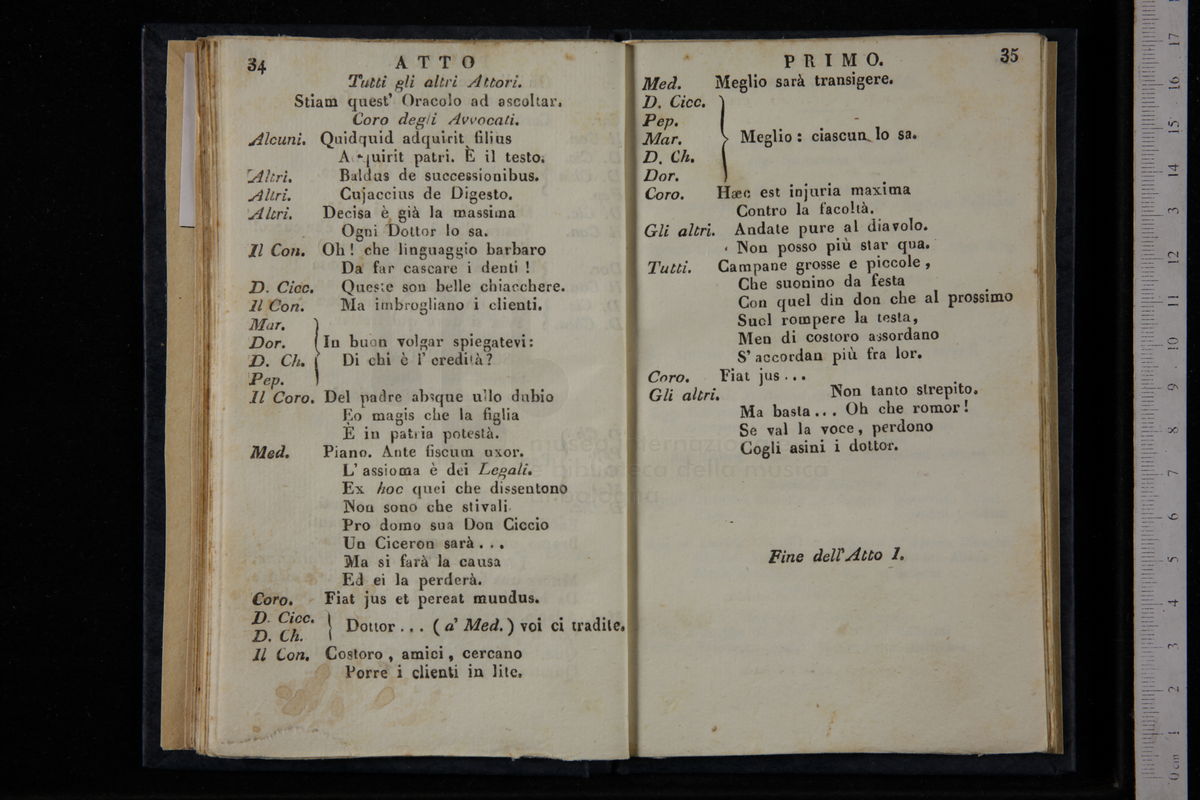 34
ATTO
Tutti gli altri Attori.
Stiam quest' Oracolo ad ascoltar.
Coro degli Avvocati.
Alcuni. Quidquid adquirit filius
Acquirit patri. È il testo.
Altri. Baldus de successionibus.
Altri. Cujaccius de Digesto.
Altri. Decisa è già la massima
Ogni Dottor lo sa.
Il Con. Oh! che linguaggio barbaro
Da far cascare i denti!
D. Cicc. Queste son belle chiacchere.
Il Con. Ma imbrogliano i clienti.
Mar.
Dor. In buon volgar spiegatevi:
D. Ch. Di chi è l' eredità?
Pep.
Il Coro. Del padre absque ullo dubio
Eo magis che la figlia
È in patria potestà.
Med. Piano. Ante fiscum uxor.
L' assioma è dei Legali.
Ex hoc quei che dissentono
Non sono che stivali.
Pro domo sua Don Ciccio
Un Ciceron sarà...
Ma si farà la causa
Ed ei la perderà.
Coro. Fiat jus et pereat mundus.
D. Cicc.
D. Ch. Dottor... (a' Med.) voi ci tradite.
Il Con. Costoro, amici, cercano
Porre i clienti in lite.
PRIMO.
35
Med. Meglio sarà transigere.
D. Cicc.
Pep.
Mar. Meglio: ciascun lo sa.
D. Ch.
Dor.
Coro. Hæc est injuria maxima
Contro la facoltà.
Gli altri. Andate pure al diavolo.
Non posso più star qua.
Tutti. Campane grosse e piccole,
Che suonino da festa
Con quel din don che al prossimo
Suol rompere la testa,
Men di costoro assordano
S' accordan più fra lor.
Coro. Fiat jus...
Gli altri. Non tanto strepito.
Ma basta... Oh che romor!
Se val la voce, perdono
Cogli asini i dottor.
Fine dell' Atto I.
museo internazionale
e biblioteca della musica
di bologna